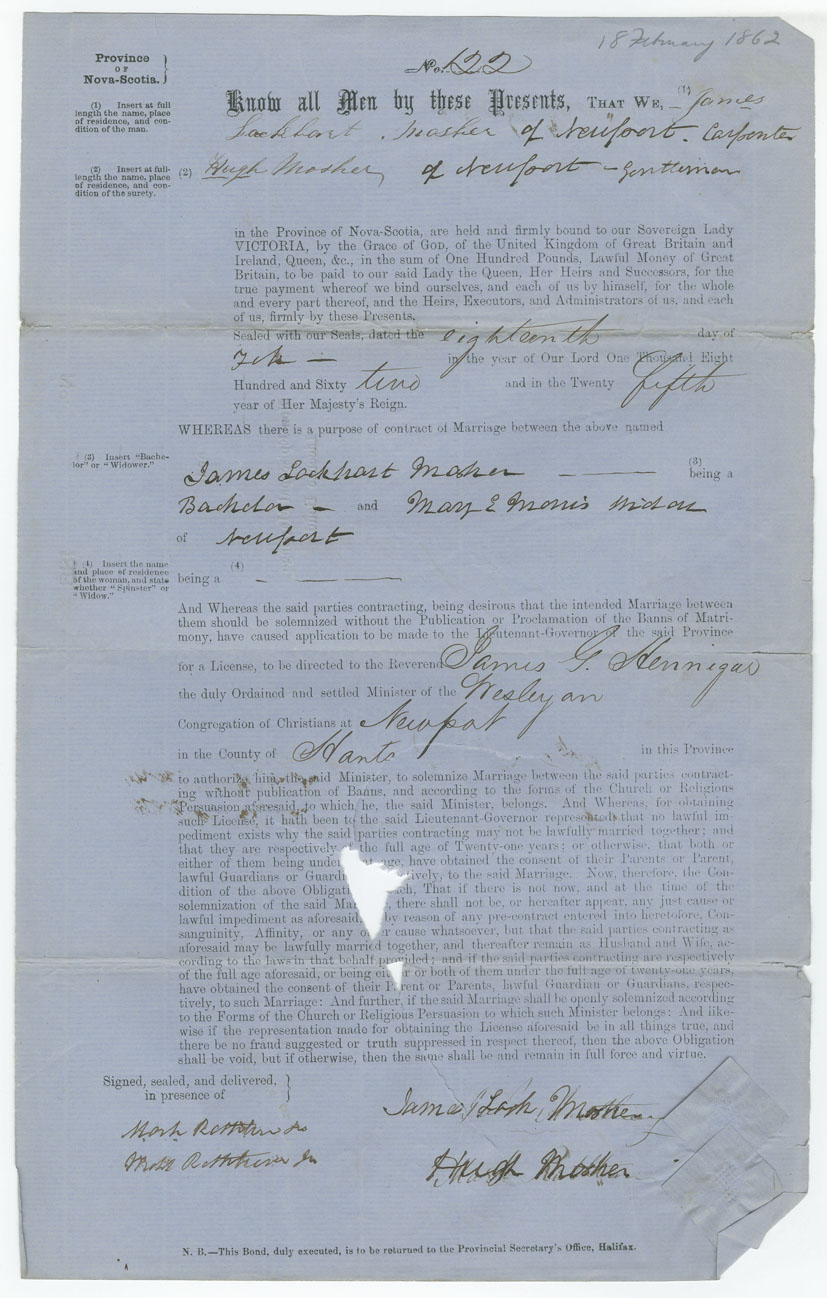 18 February 1862
Province
OF
Nova-Scotia.
No. 122
Know all Men by these Presents, THAT WE, (1) James
Lockhart Mosher of Newport. Carpenter
(1) Insert at full
length the name, place
of residence, and con-
dition of the man.
(2) Hugh Mosher, of Newport - Gentleman
(2) Insert at full-
length the name, place
of residence, and con-
dition of the surety.
in the Province of Nova-Scotia, are held and firmly bound to our Sovereign Lady
VICTORIA, by the Grace of GOD, of the United Kingdom of Great Britain and
Ireland, Queen, &c., in the sum of One Hundred Pounds, Lawful Money of Great
Britain, to be paid to our said Lady the Queen, Her Heirs and Successors, for the
true payment whereof we bind ourselves, and each of us by himself, for the whole
and every part thereof, and the Heirs, Executors, and Administrators of us, and each
of us, firmly by these Presents.
Sealed with our Seals, dated the eighteenth day of
Feb — in the year of Our Lord One Thousand Eight
Hundred and Sixty two and in the Twenty fifth
year of Her Majesty's Reign.
WHEREAS there is a purpose of contract of Marriage between the above named
James Lockhart Mosher — (3) being a
(3) Insert "Bache-
lor" or "Widower."
Bachelor - and Mary E Morris Widow
of Newport
(4)
being a - —
(4) Insert the name
and place of residence
of the woman, and state
whether "Spinster" or
"Widow."
And Whereas the said parties contracting, being desirous that the intended Marriage between
them should be solemnized without the Publication or Proclamation of the Banns of Matri-
mony, have caused application to be made to the Lieutenant-Governor of the said Province
for a License, to be directed to the Reverend James G. Hennigar
the duly Ordained and settled Minister of the Wesleyan
Congregation of Christians at Newport
in the County of Hants in this Province
to authorize him, the said Minister, to solemnize Marriage between the said parties contract-
ing without publication of Banns, and according to the forms of the Church or Religious
Persuasion aforesaid, to which he, the said Minister, belongs. And Whereas, for obtaining
such License, it hath been to the said Lieutenant-Governor represented that no lawful im-
pediment exists why the said parties contracting may not be lawfully married together; and
that they are respectively the full age of Twenty-one years; or otherwise, that both or
either of them being under age, have obtained the consent of their Parents or Parent,
lawful Guardians or Guardi tively, to the said Marriage. Now, therefore, the Con-
dition of the above Obligati ch, That if there is not now, and at the time of the
solemnization of the said Mar , there shall not be, or hereafter appear, any just cause or
lawful impediment as aforesaid, by reason of any pre-contract entered into heretofore, Con-
sanguinity, Affinity, or any other cause whatsoever, but that the said parties contracting as
aforesaid may be lawfully married together, and thereafter remain as Husband and Wife, ac-
cording to the laws in that behalf provided; and if the said parties contracting are respectively
of the full age aforesaid, or being either or both of them under the full age of twenty-one years,
have obtained the consent of their Parent or Parents, lawful Guardian or Guardians, respec-
tively, to such Marriage: And further, if the said Marriage shall be openly solemnized according
to the Forms of the Church or Religious Persuasion to which such Minister belongs: And like-
wise if the representation made for obtaining the License aforesaid be in all things true, and
there be no fraud suggested or truth suppressed in respect thereof, then the above Obligation
shall be void, but if otherwise, then the same shall be and remain in full force and virtue.
Signed, sealed, and delivered,
in presence of
James Lock Mosher
Hugh Mosher
N. B.—This Bond, duly executed, is to be returned to the Provincial Secretary's Office, Halifax.